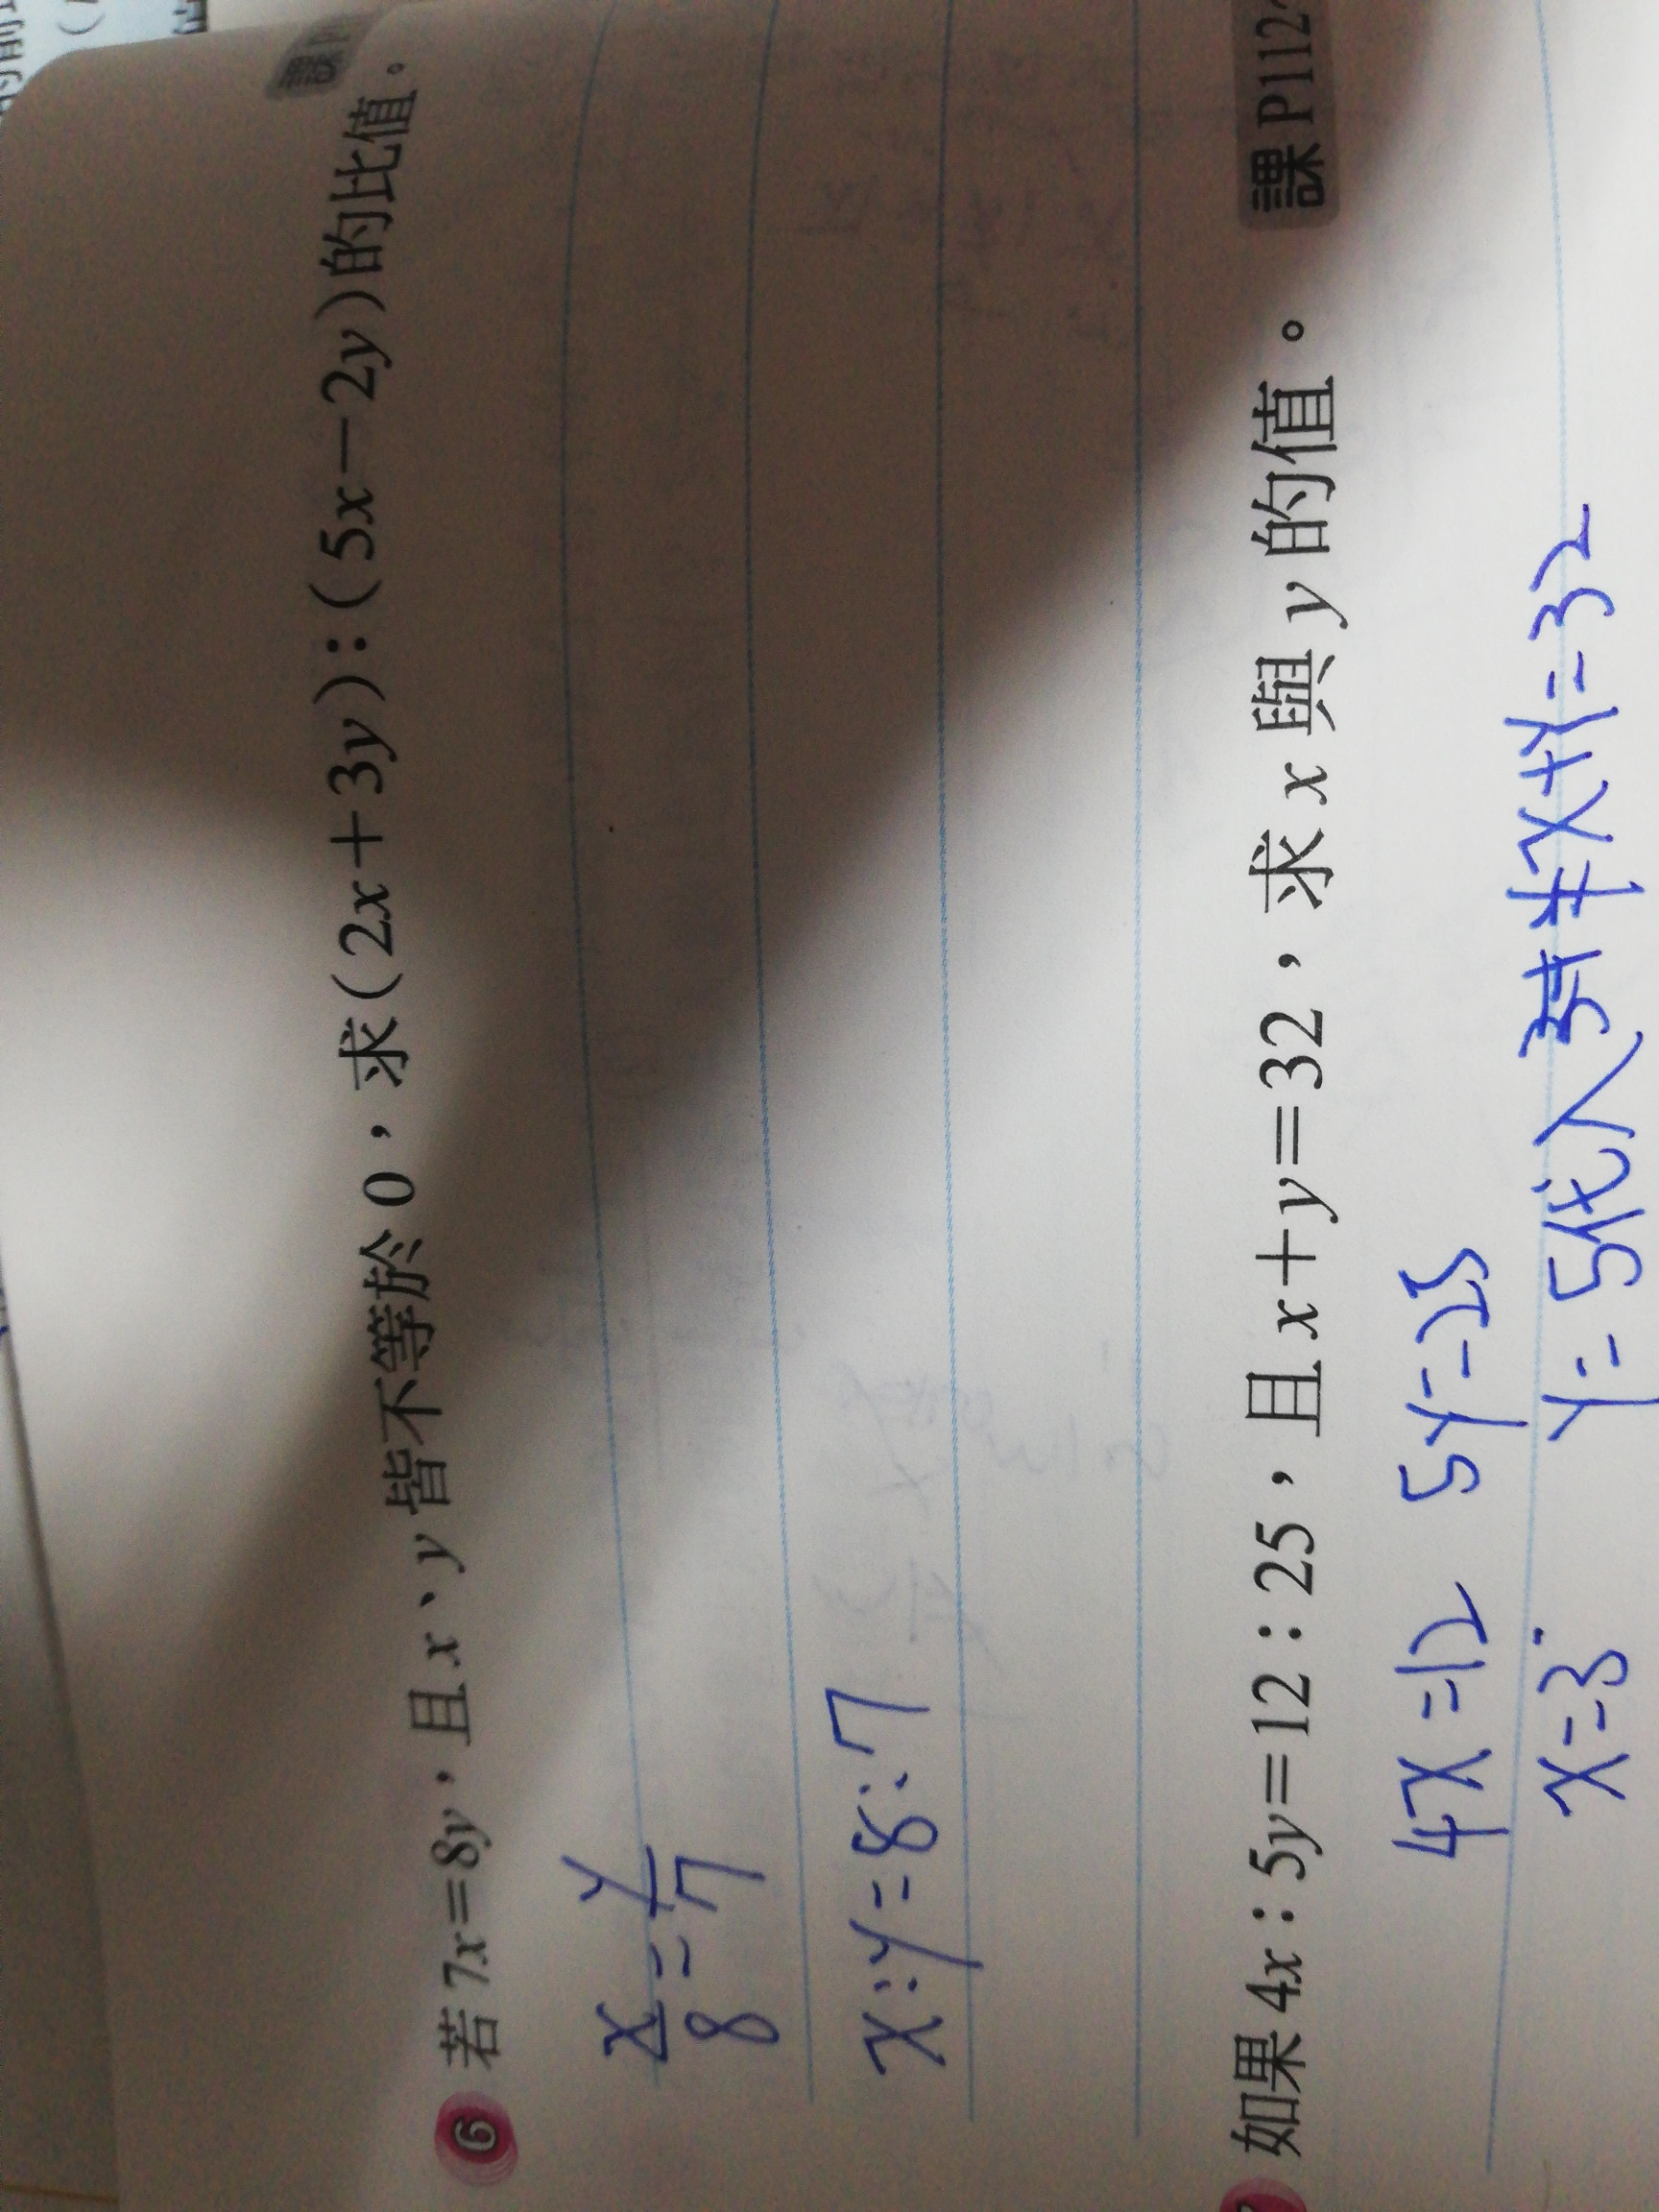 課P
6 若7x=8y，且x、y皆不等於0，求(2x+3y):(5x-2y)的比值。
x/8 = y/7
x:y=8:7
課P112
如果4x:5y=12:25，且x+y=32，求x與y的值。
4x=12 5y=25
x=3 y=5代入 x+y=32